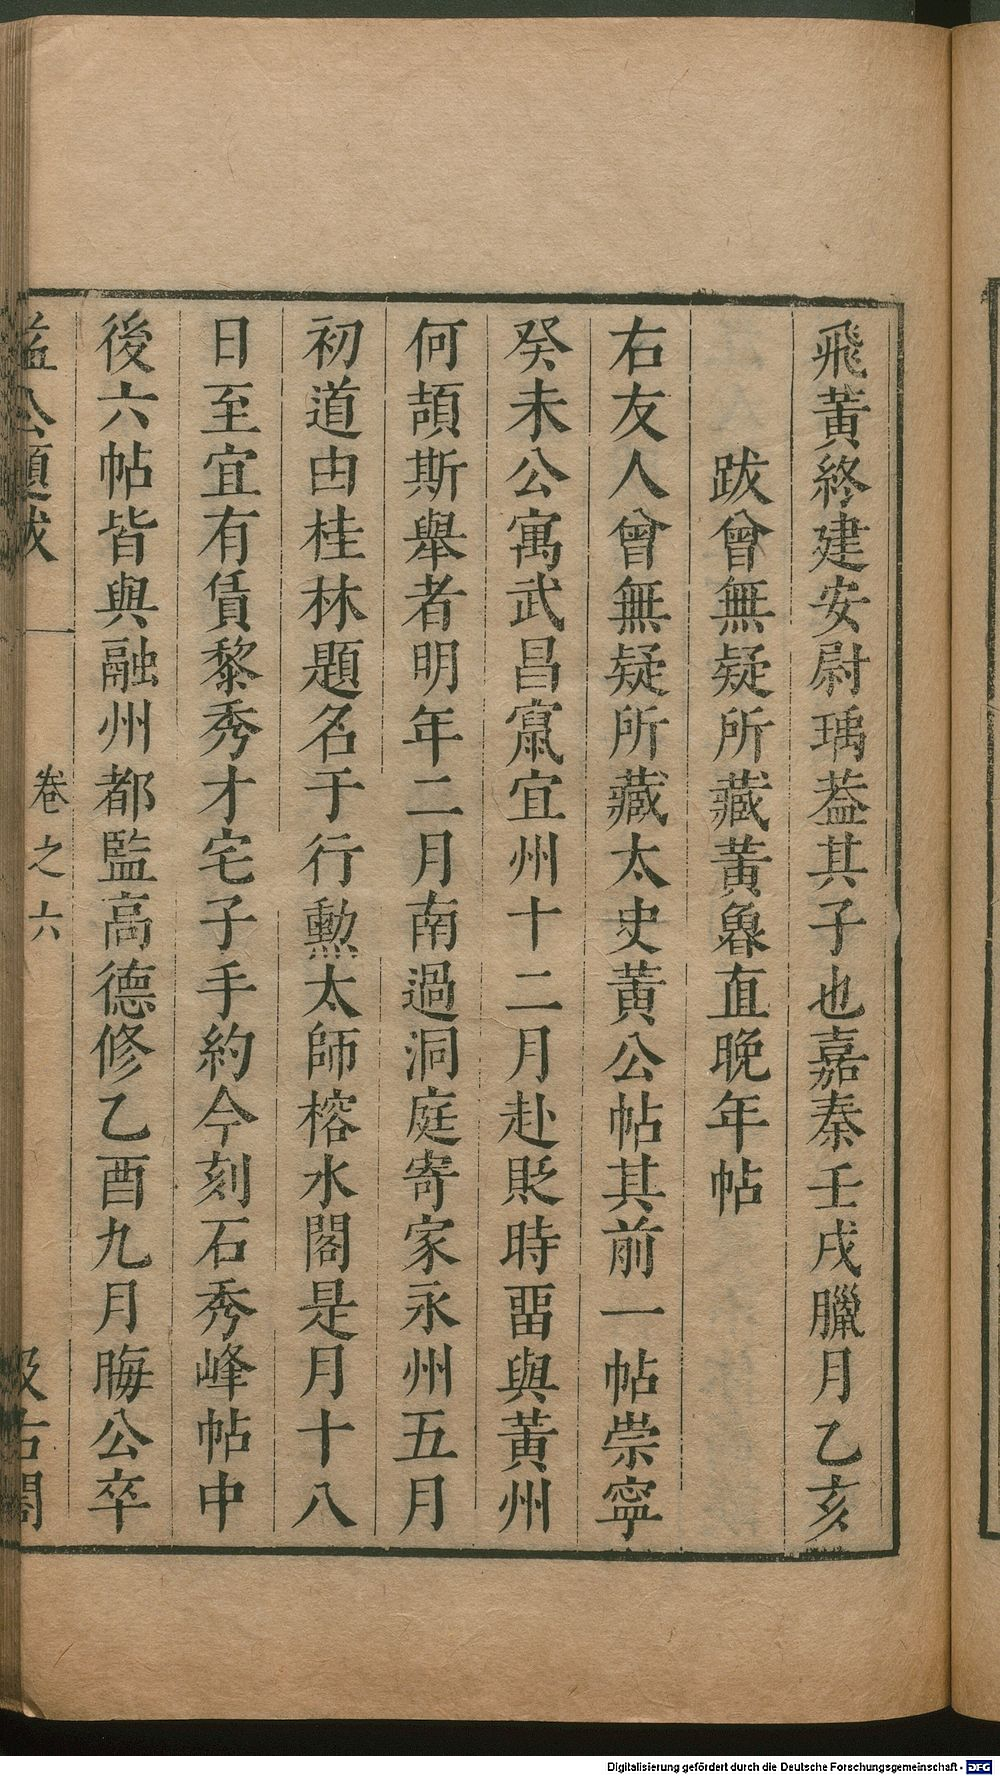 飛黃終建安尉瑀葢其子也嘉泰壬戌臘月乙亥
跋曾無疑所藏黃魯直晚年帖
右友人曾無疑所藏太史黃公帖其前一帖崇寧
癸未公寓武昌竄宜州十二月赴貶時畱與黃州
何頡斯舉者明年二月南過洞庭寄家永州五月
初道由桂林題名于行勲太師榕水閣是月十八
日至宜有賃黎秀才宅子手約今刻石秀峰帖中
後六帖皆與融州都監高德修乙酉九月晦公卒
益公題跋
卷之六
汲古閣
Digitalisierung gefördert durch die Deutsche Forschungsgemeinschaft - DFG